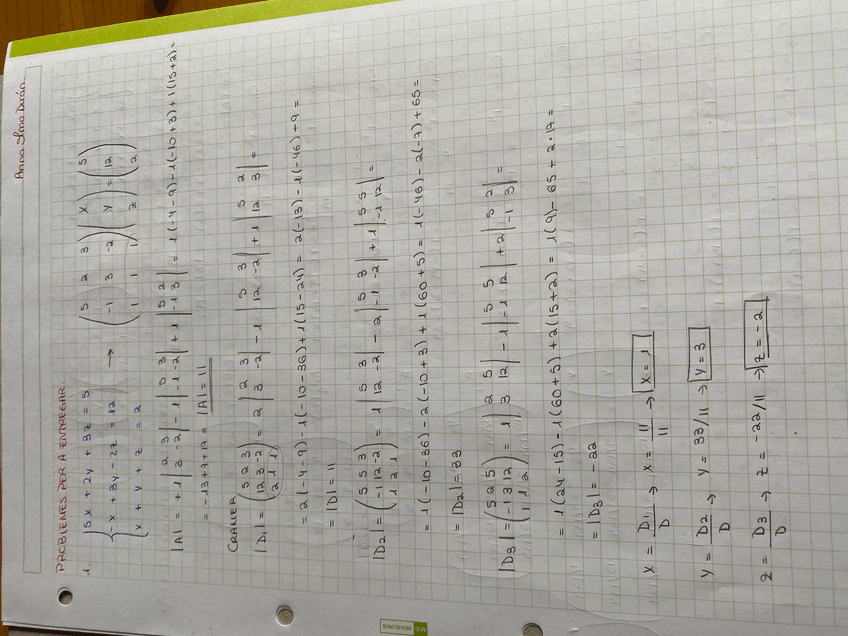 Anna Olmo Durán
PROBLEMES PER A ENTREGAR
1. { 5x + 2y + 3z = 5
-x + 3y - 2z = 12
x + y + z = 2
→ (5 2 3 / -1 3 -2 / 1 1 1) (x / y / z) = (5 / 12 / 2)
|A| = +1 |2 3 / 3 -2| - 1 |5 3 / -1 -2| + 1 |5 2 / -1 3| = 1(-4-9) - 1(-10+3) + 1(15+2) =
= -13+7+17 = |A| = 11
CRAMER
|D₁| = (5 2 3 / 12 3 -2 / 2 1 1) = 2 |2 3 / 3 -2| - 1 |5 3 / 12 -2| + 1 |5 2 / 12 3| =
= 2(-4-9) - 1(-10-36) + 1(15-24) = 2(-13) - 1(-46) + 9 =
= |D| = 11
|D₂| = (5 5 3 / -1 12 -2 / 1 2 1) = 1 |5 3 / 12 -2| - 2 |5 3 / -1 -2| + 1 |5 5 / -1 12| =
= 1(-10-36) - 2(-10+3) + 1(60+5) = 1(-46) - 2(-7) + 65 =
= |D₂| = 33
|D₃| = (5 2 5 / -1 3 12 / 1 1 2) = 1 |2 5 / 3 12| - 1 |5 5 / -1 12| + 2 |5 2 / -1 3| =
= 1(24-15) - 1(60+5) + 2(15+2) = 1(9) - 65 + 2·17 =
= |D₃| = -22
x = D₁/D → x = 11/11 → x = 1
y = D₂/D → y = 33/11 → y = 3
z = D₃/D → z = -22/11 → z = -2
MIQUELRIUS